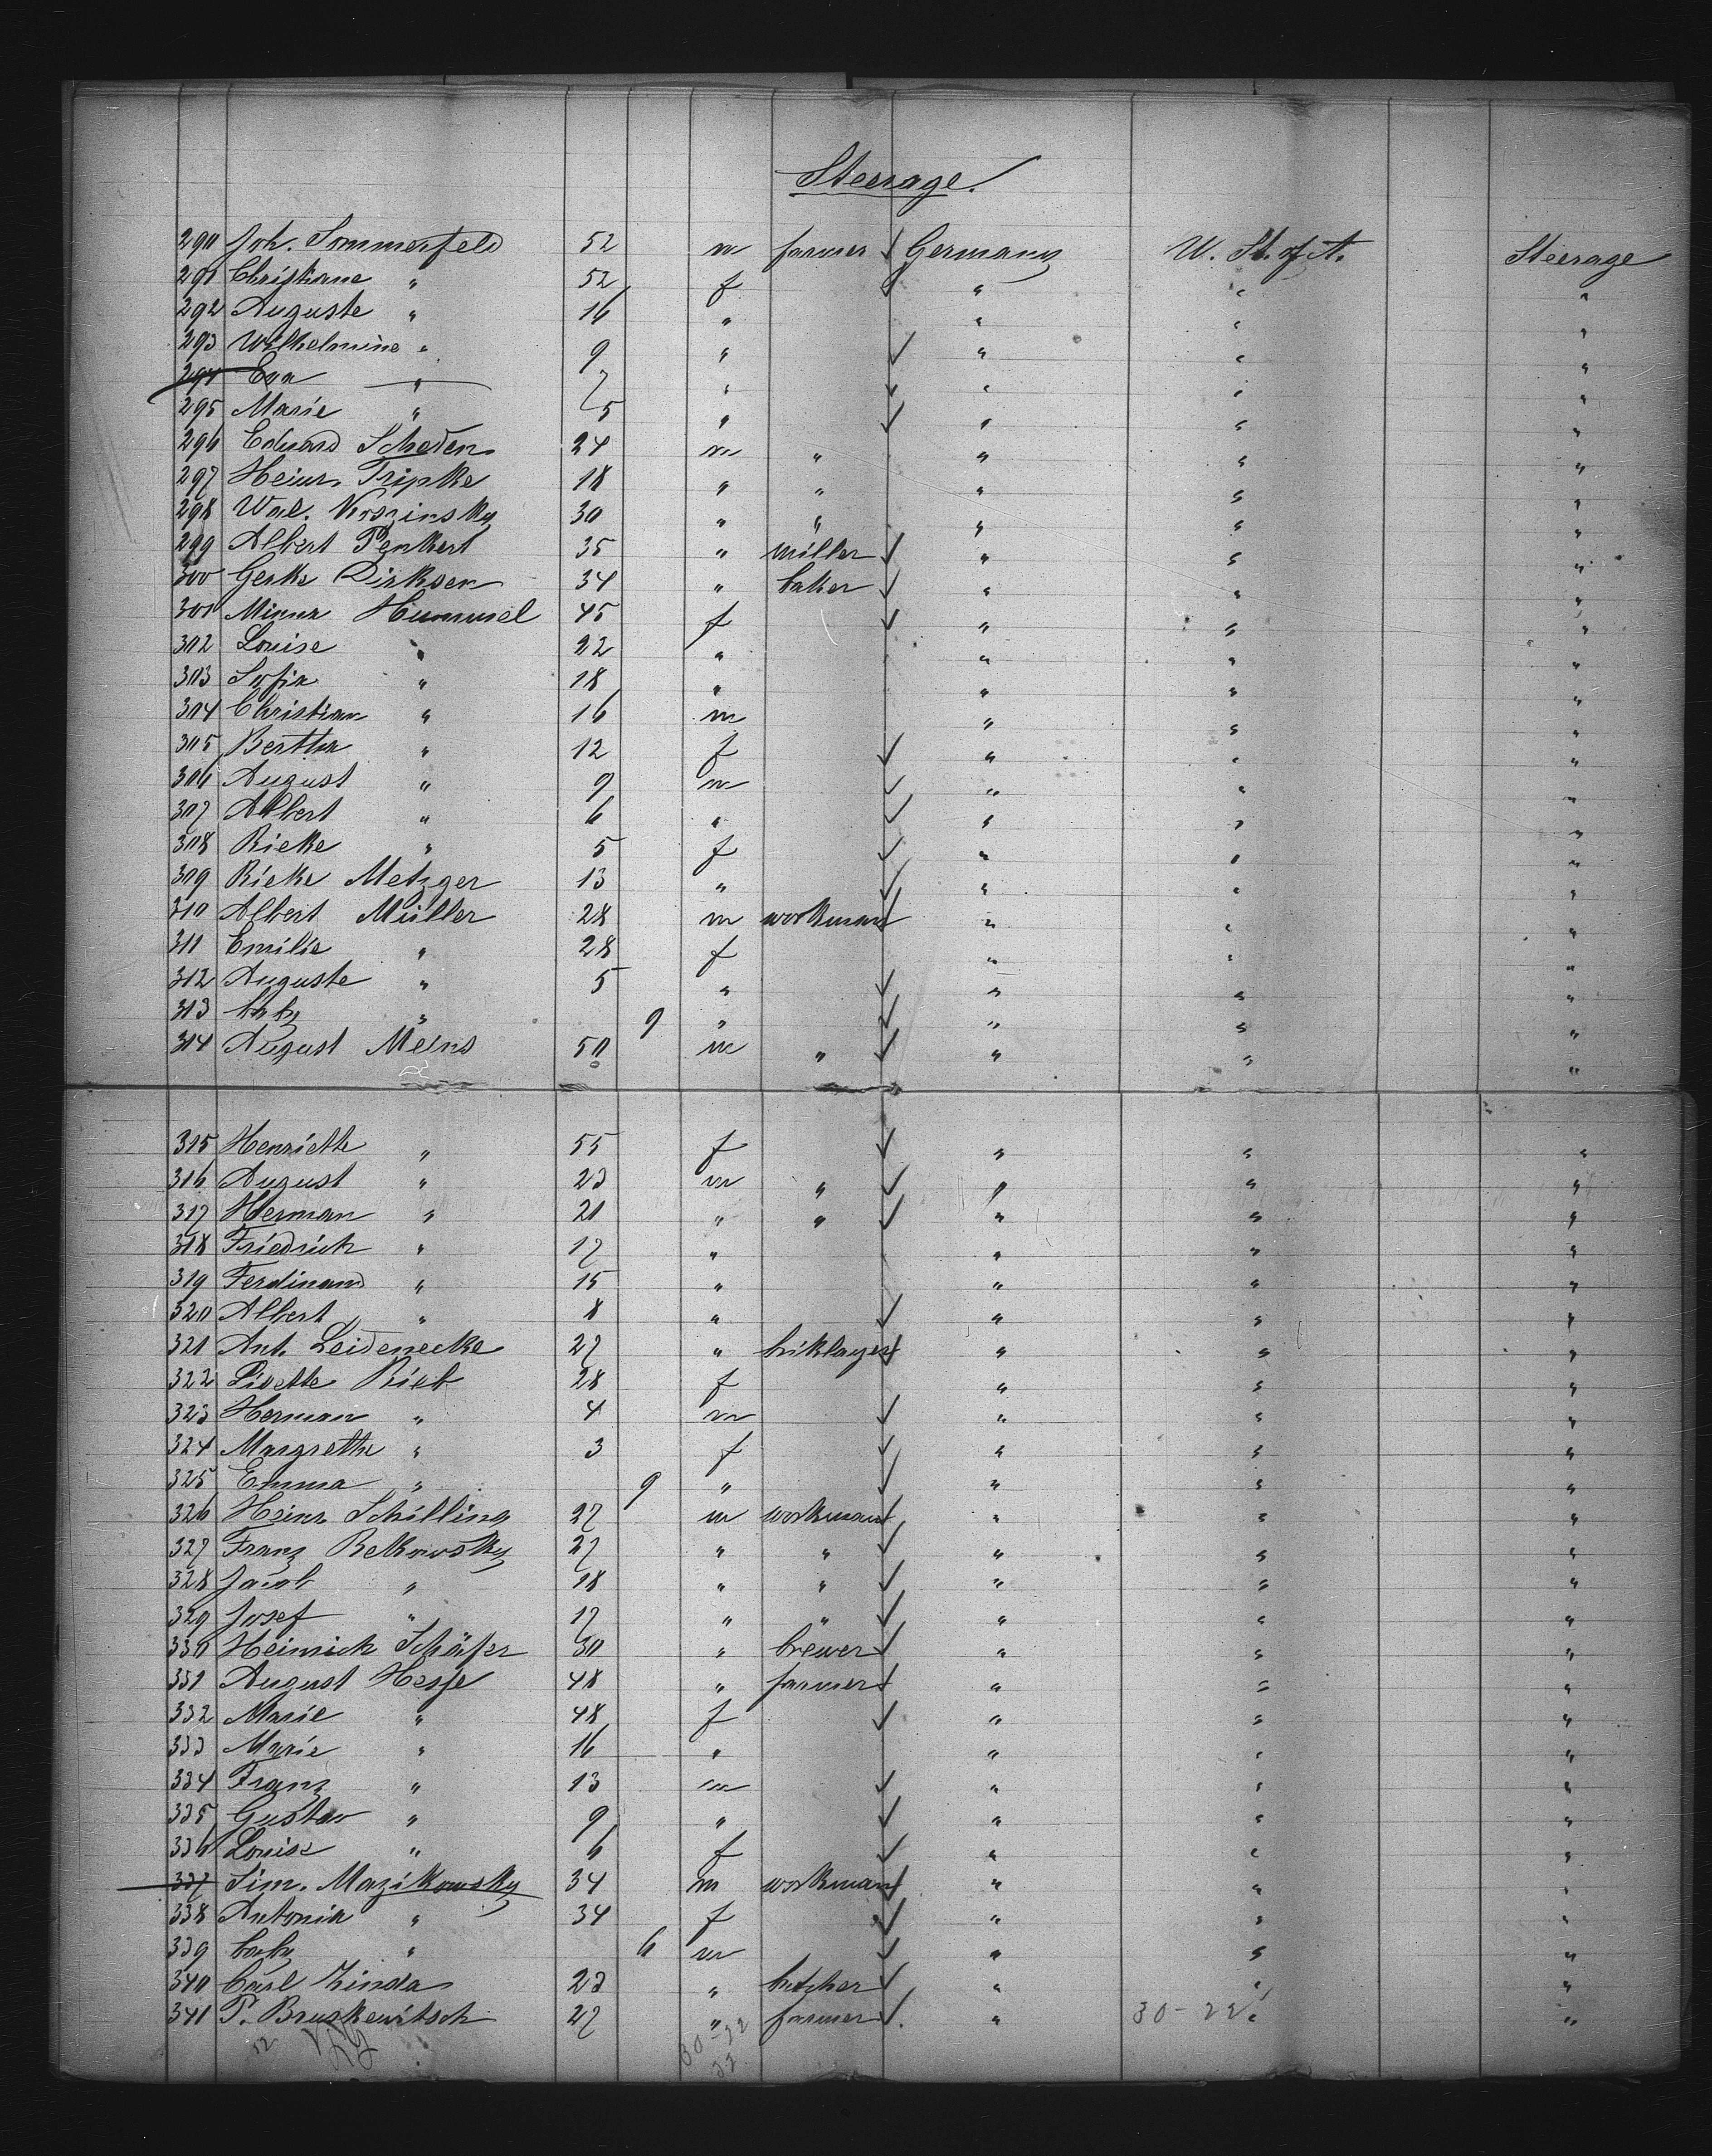 Steerage.
290 Joh. Sommerfeld 52 m farmer ✓ Germany U. St. of A. Steerage
291 Christiane " 52 f ✓ " " "
292 Auguste " 16 " " " "
293 Wilhelmine " 9 " ✓ " " "
294 Eva " 7 " ✓ " " "
295 Marie " 5 " ✓ " " "
296 Eduard Scheden 24 m " " " "
297 Heinr. Tripke 18 " " " " "
298 Wal. 30 " " " " "
299 Albert Penkert 35 " miller ✓ " " "
300 Gerke Dirksen 34 " baker ✓ " " "
301 Minna Hummel 45 f ✓ " " "
302 Louise " 22 " " " "
303 Sofia " 18 " " " "
304 Christian " 16 m " " "
305 Bertha " 12 f ✓ " " "
306 August " 9 m ✓ " " "
307 Albert " 6 " ✓ " " "
308 Rieke " 5 f ✓ " " "
309 Rieke Metzger 13 " ✓ " " "
310 Albert Müller 28 m workman ✓ " " "
311 Emilie " 28 f " " "
312 Auguste " 5 " ✓ " " "
313 baby " 9 " ✓ " " "
314 August Meins 50 m " ✓ " " "
315 Henriette " 55 f ✓ " " "
316 August " 23 m " ✓ " " "
317 Herman " 21 " " ✓ " " "
318 Friedrich " 17 " " " "
319 Ferdinand " 15 " " " "
320 Albert " 8 " ✓ " " "
321 Ant. Leidenecke 27 " briklayer ✓ " " "
322 Lisette Rieb 28 f " " "
323 Herman " 4 m ✓ " " "
324 Margrethe " 3 f ✓ " " "
325 Emma " 9 " ✓ " " "
326 Heinr. Schilling 27 m workman ✓ " " "
327 Franz Relkowsky 27 " " ✓ " " "
328 Jacob " 18 " " ✓ " " "
329 Josef " 17 " " ✓ " " "
330 Heinrich Schäfer 30 " brewer ✓ " " "
331 August Hesse 48 " farmer ✓ " " "
332 Marie " 48 f ✓ " " "
333 Marie " 16 " " " "
334 Franz " 13 m ✓ " " "
335 Gustav " 9 " ✓ " " "
336 Louise " 6 f ✓ " " "
337 Sim. Mazikowsky 34 m workman ✓ " " "
338 Antonia " 34 f ✓ " " "
339 baby " 6 m ✓ " " "
340 Carl Zinda 23 " butcher ✓ " " "
341 P. Bruskewitsch 27 " farmer ✓ " 30-22 " "
52 30-22
22